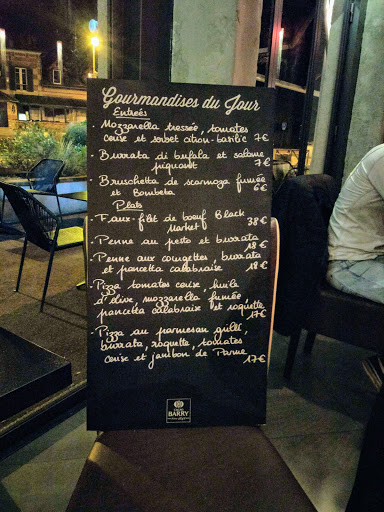 Gourmandises du Jour
Entrées
- Mozzarella tressée, tomates
cerise et sorbet citron-basilic 7€
- Burrata di bufala et salame
piquant 7€
- Bruschetta de scamoza fumée
et Bombeta 6€
Plats
- Faux-filet de boeuf Black
Market 38€
- Penne au pesto et burrata
18€
- Penne aux courgettes, burrata
et pancetta calabraise 18€
- Pizza tomates cerise, huile
d'olive, mozzarella fumée,
pancetta calabraise et roquette
17€
- Pizza au parmesan grillé,
burrata, roquette, tomates
cerise et jambon de Parme
17€
BARRY